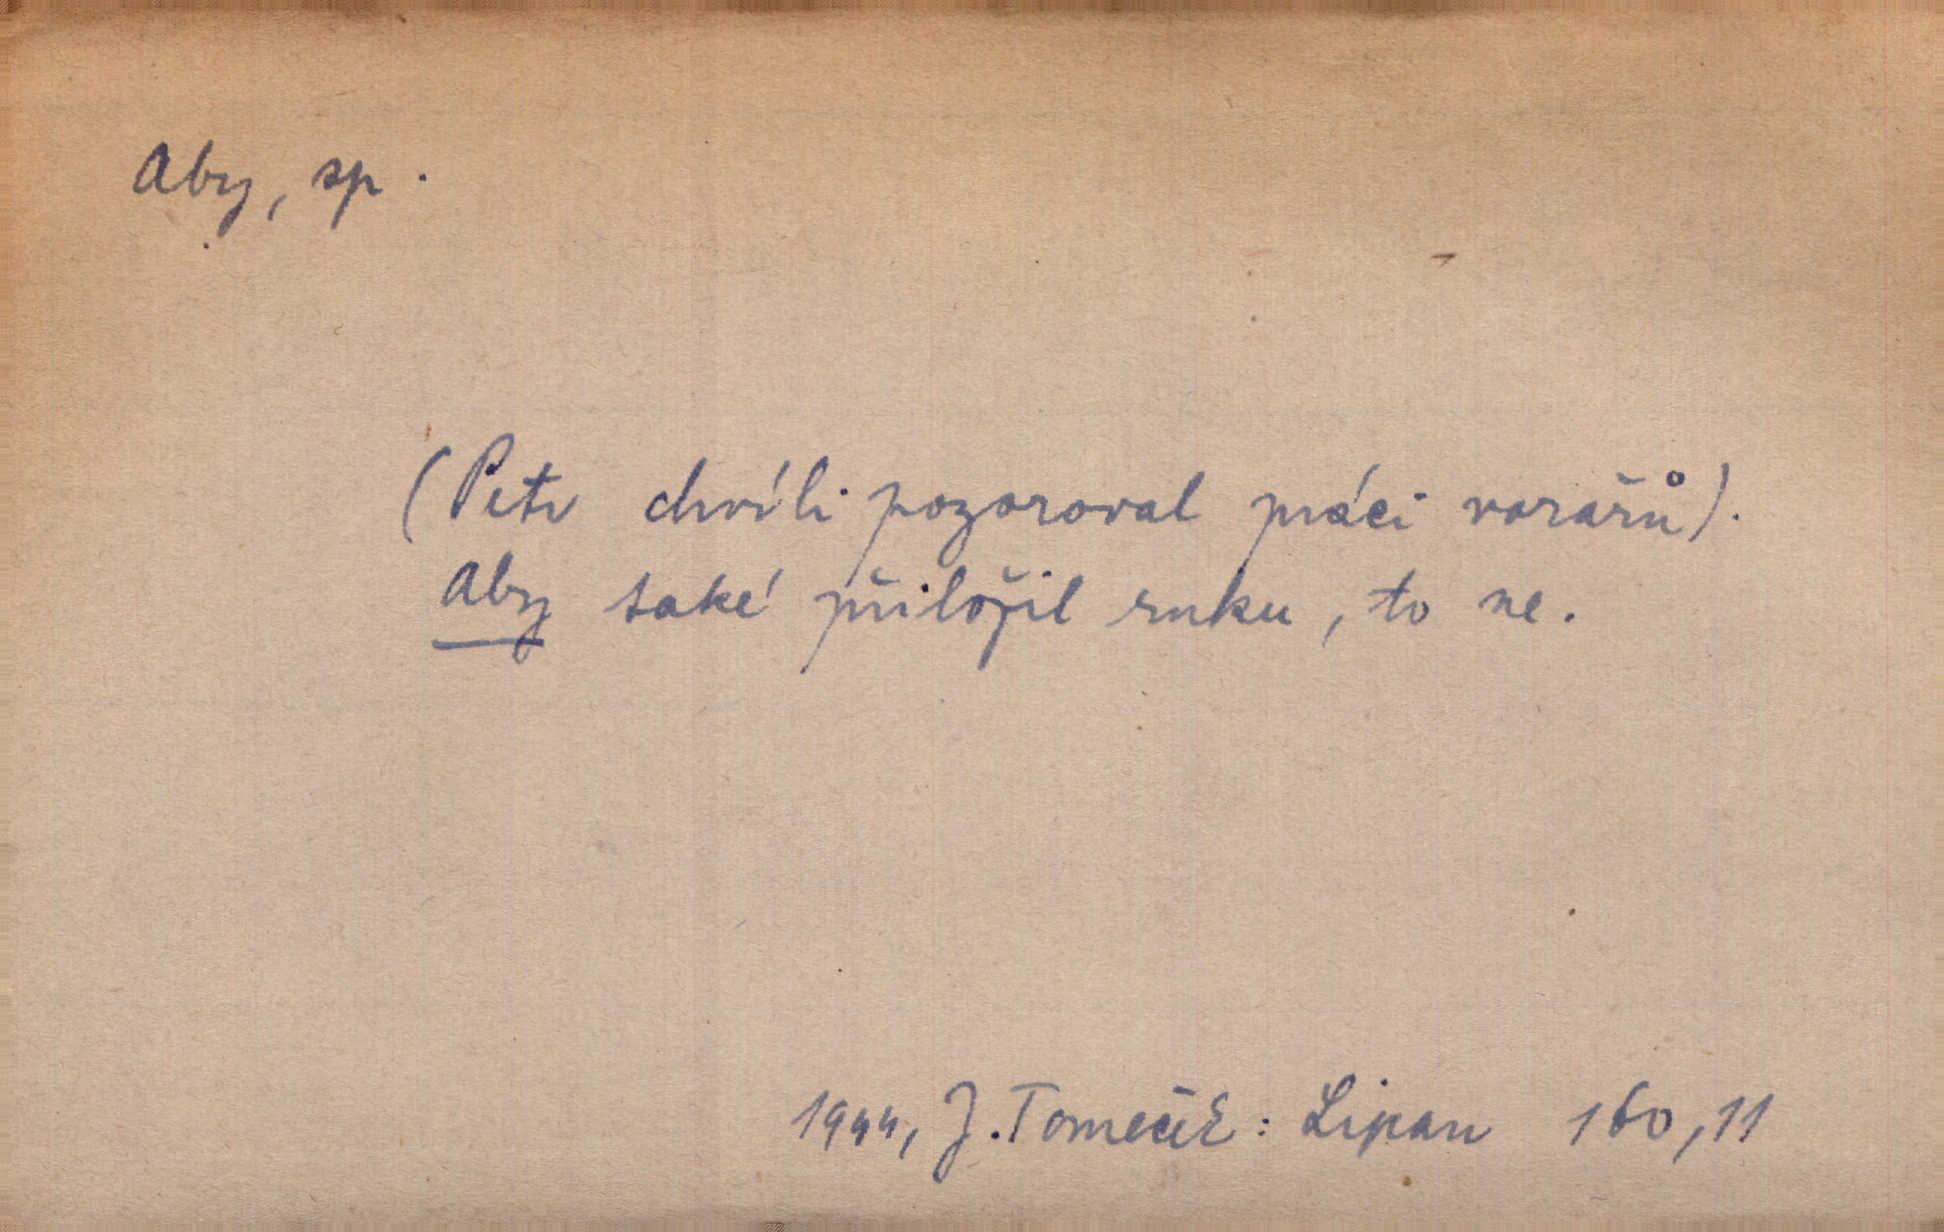 Aby, sp.
(Petr chvíli pozoroval práci vorařů).
Aby také přiložil ruku, to ne.
1944, J. Tomeček: Lipan 160,11